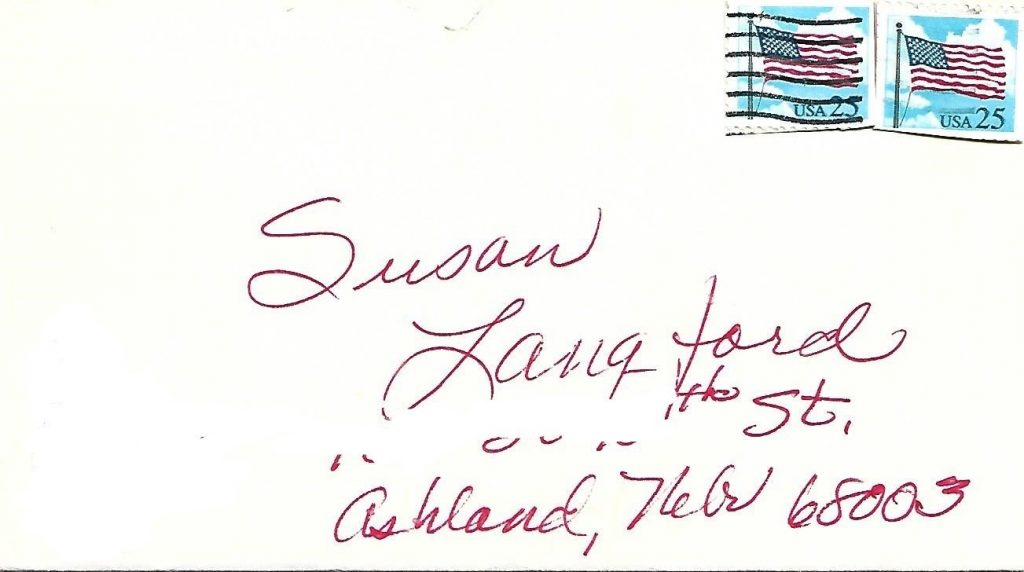 USA 25 USA 25
Susan
Langford
th St.
Ashland, Nebr 68003